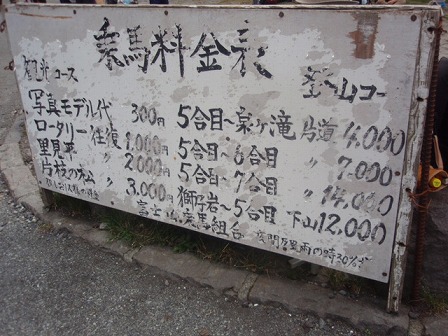 乗馬料金表
観光コース
写真モデル代 300円
ロータリー往復 1,000円
里見平 〃 2,000円
片枝の松 〃 3,000円
登山コー
5合目〜泉ヶ滝 馬道 4,000
5合目〜6合目 〃 7,000
5合目〜7合目 〃 14,000
獅子岩〜5合目 下山 12,000
富士山乗馬組合 夜間暴風雨の時30%